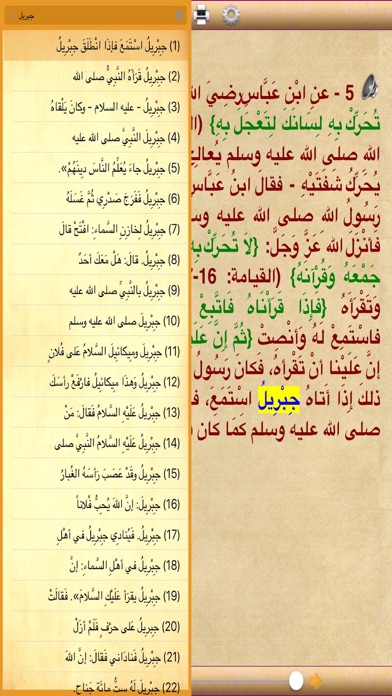 جبريل
(1) جِبْرِيلُ اسْتَمَعَ فإذَا انْطَلَقَ جِبْرِيلُ
(2) جِبْرِيلُ قَرَأَهُ النَّبِيُّ صلى الله
(3) جِبْرِيلُ - عليه السلام - وكانَ يَلْقاهُ
(4) جِبْرِيلَ النَّبِيَّ صلى الله عليه
(5) جِبْرِيلُ جاءَ يُعَلِّمُ النَّاسَ دينَهُمْ».
(6) جِبْرِيلُ فَفَرَجَ صَدْرِي ثُمَّ غَسَلَهُ
(7) جِبْرِيلُ لِخازِنِ السَّماءِ: افْتَحْ قالَ
(8) جِبْرِيلُ. قالَ: هَلْ مَعَكَ أحَدٌ
(9) جِبْرِيلُ بالنَّبِيِّ صلى الله عليه
(10) جِبْرِيلَ صلى الله عليه وسلم
(11) جِبْرِيلَ وميكائيلَ السَّلامُ عَلى فُلانٍ
(12) جِبْرِيلُ وَهذا ميكائيلُ فارْفَعْ رَأسَكَ
(13) جِبْرِيلُ عَلَيْهِ السَّلامُ فَقَالَ: مَنْ
(14) جِبْرِيلُ عَلَيْهِ السَّلامُ النَّبِيَّ صلى
(15) جِبْرِيلُ وقَدْ عَصَبَ رَأسَهُ الغُبارُ
(16) جِبْرِيلَ: إنَّ اللهَ يُحِبُّ فُلاناً
(17) جِبْرِيلُ. فَيُنادِي جِبْرِيلُ في أهْلِ
(18) جِبْرِيلُ في أهْلِ السَّماءِ: إنَّ
(19) جِبْرِيلُ يقرَأ عَلَيْكِ السَّلامَ». فَقالَتْ
(20) جِبْرِيلُ عَلى حرْفٍ فَلَمْ أزَلْ
(21) جِبْرِيلُ فَنادَاني فَقَالَ: إنَّ اللهَ
(22) جِبْرِيلَ لَهُ ستُّ مائَةِ جَناحٍ.
5 - عنِ ابْنِ عَبَّاسٍ رضِيَ
تُحَرِّكْ بِهِ لِسَانَكَ لِتَعْجَلَ بِهِ}
الله صلى الله عليه وسلم يُعالِجُ
يُحَرِّكُ شَفَتَيْهِ - فقالَ ابنُ عبَّاسٍ
رَسُولُ الله صلى الله عليه
فأنْزَلَ الله عَزَّ وَجَلَّ: {لَا تُحَرِّكْ
جَمْعَهُ وَقُرْآنَهُ} (القيامة: 16-
وَتَقْرَأَهُ {فَإِذَا قَرَأْنَاهُ فَاتَّبِعْ
فاسْتَمِعْ لَهُ وَأنْصِتْ {ثُمَّ إِنَّ
إنَّ عَلَيْنا أنْ تَقْرأهُ، فَكان رَسولُ
ذلكَ إذا أتاهُ جِبْرِيلُ اسْتمَعَ،
صلى الله عليه وسلم كَمَا كان